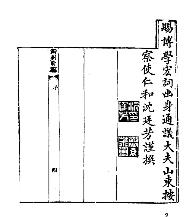 賜博學宏詞出身通議大夫山東按
察使仁和沈廷芳謹撰
序
四